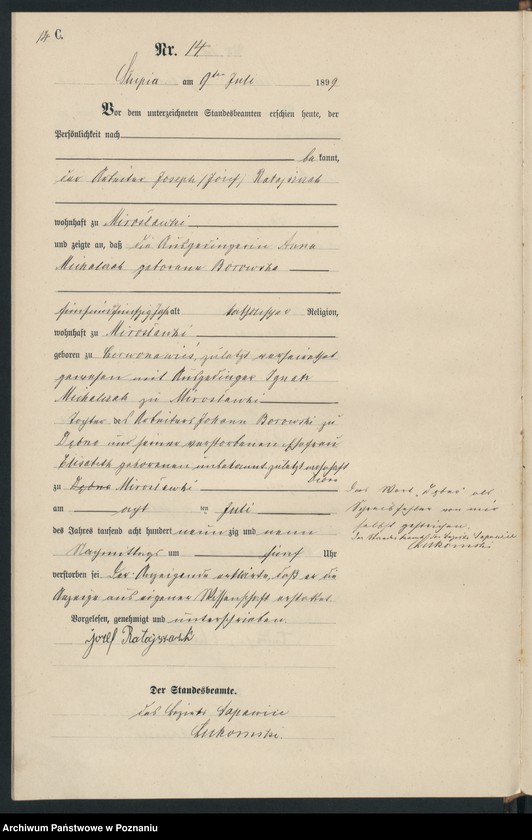 C.
Nr. 14
Słupia am 9ten Juli 1899
Vor dem unterzeichneten Standesbeamten erschien heute, der
Persönlichkeit nach
bekannt,
der Arbeiter Joseph /Józef/ Ratajczak
wohnhaft zu Mirosławki
und zeigte an, daß die Ausgedingerin Anna
Michalczak geborene Borowska
fünfundfünfzig Jahre alt katholischer Religion,
wohnhaft zu Mirosławki
geboren zu zuletzt verheirathet
gewesen mit Ausgedinger Ignatz
Michalczak zu Mirosławki
Tochter des Arbeiters Johann Borowski zu
Dębno und seiner verstorbenen Ehefrau
Elisabeth geborenen unbekannt zuletzt wohnhaft
zu Dębno Mirosławki
am acht ten Juli
des Jahres tausend acht hundert neunzig und neun
Nachmittags um fünf Uhr
verstorben sei. Der Anzeigende erklärte, daß er die
Anzeige aus eigener Wissenschaft erstattet.
Vorgelesen, genehmigt und unterschrieben.
Józef Ratajczak
Der Standesbeamte.
des Bezirks Sapowice
Łukomski.
Das Wort als
Schreibfehler von mir
selbst gestrichen.
Der Standesbeamte des Bezirks Sapowice
Łukomski
Archiwum Państwowe w Poznaniu